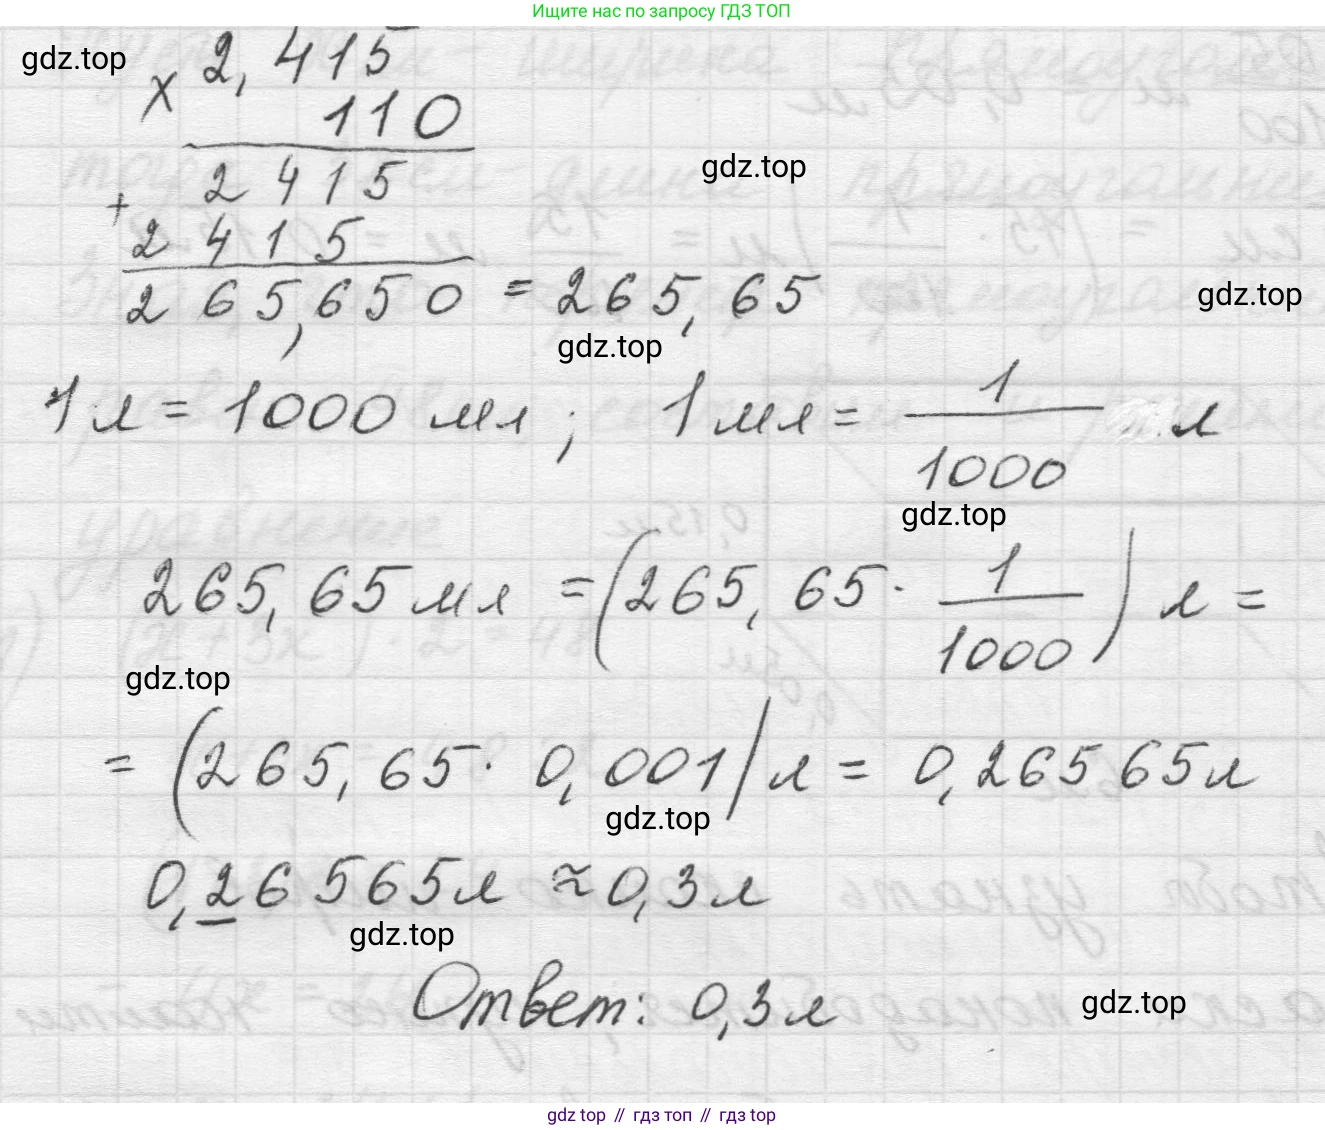 Ищите нас по запросу ГДЗ ТОП
gdz.top
× 2,415
110
gdz.top
+ 2415
2415
265,650 = 265,65
gdz.top
gdz.top
1 л = 1000 мл; 1 мл = 1/1000 л
gdz.top
265,65 мл = (265,65 · 1/1000) л =
gdz.top
= (265,65 · 0,001) л = 0,26565 л
gdz.top
0,26565 л ≈ 0,3 л
gdz.top
Ответ: 0,3 л
gdz.top
gdz top // гдз топ // gdz top